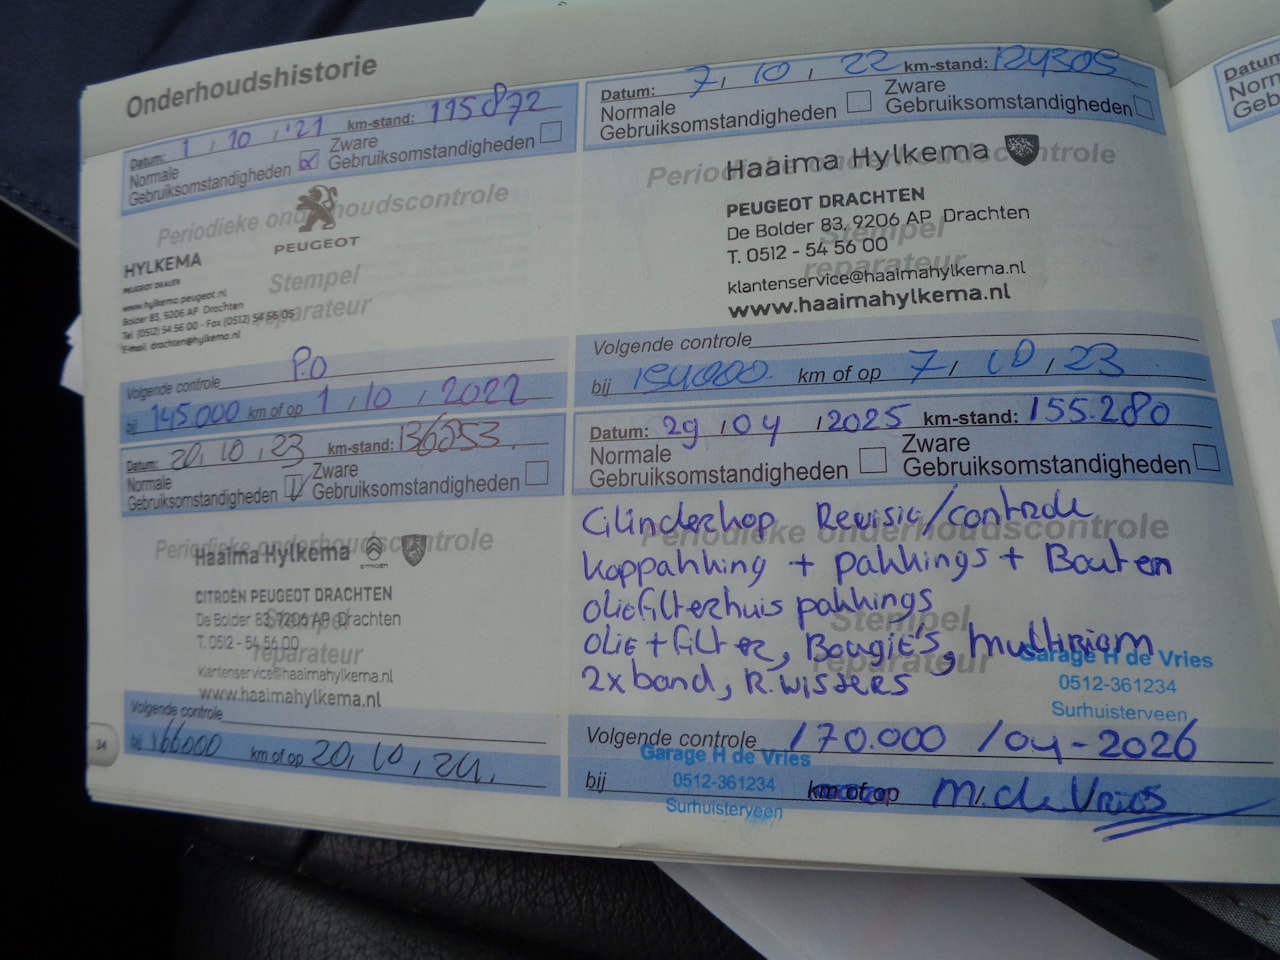 Onderhoudshistorie
Datum: 1, 10, '21 km-stand: 115872
Normale
Gebruiksomstandigheden
Zware
Gebruiksomstandigheden
Periodieke onderhoudscontrole
Stempel
reparateur
PEUGEOT
HYLKEMA
PEUGEOT DEALER
www.hylkema.peugeot.nl
Bolder 83, 9206 AP Drachten
Tel. (0512) 54 56 00 - Fax (0512) 54 56 05
E-mail: drachten@hylkema.nl
Volgende controle P.O
bij 145.000 km of op 1, 10, 2022
Datum: 7, 10, 22 km-stand: 124305
Normale
Gebruiksomstandigheden
Zware
Gebruiksomstandigheden
Periodieke onderhoudscontrole
Stempel
reparateur
Haaima Hylkema
PEUGEOT DRACHTEN
De Bolder 83, 9206 AP Drachten
T. 0512 - 54 56 00
klantenservice@haaimahylkema.nl
www.haaimahylkema.nl
Volgende controle
bij 154000 km of op 7, 10, 23
Datum: 20, 10, 23 km-stand: 136853
Normale
Gebruiksomstandigheden
Zware
Gebruiksomstandigheden
Periodieke onderhoudscontrole
Stempel
reparateur
Haaima Hylkema
CITROËN
CITROËN PEUGEOT DRACHTEN
De Bolder 83, 9206 AP Drachten
T. 0512 - 54 56 00
klantenservice@haaimahylkema.nl
www.haaimahylkema.nl
Volgende controle
bij 166000 km of op 20, 10, 24.
34
Datum: 29, 04, 2025 km-stand: 155.280
Normale
Gebruiksomstandigheden
Zware
Gebruiksomstandigheden
Periodieke onderhoudscontrole
Stempel
reparateur
Cilinderkop Revisie/controle
koppakking + pakkings + Bouten
oliefilterhuis pakkings
olie + filter, Bougie's, multiriem
2x band, R.wissers
Garage H de Vries
0512-361234
Surhuisterveen
Volgende controle 170.000 / 04-2026
Garage H de Vries
0512-361234
Surhuisterveen
bij km of op M. de Vries
Datum
Norm
Geb